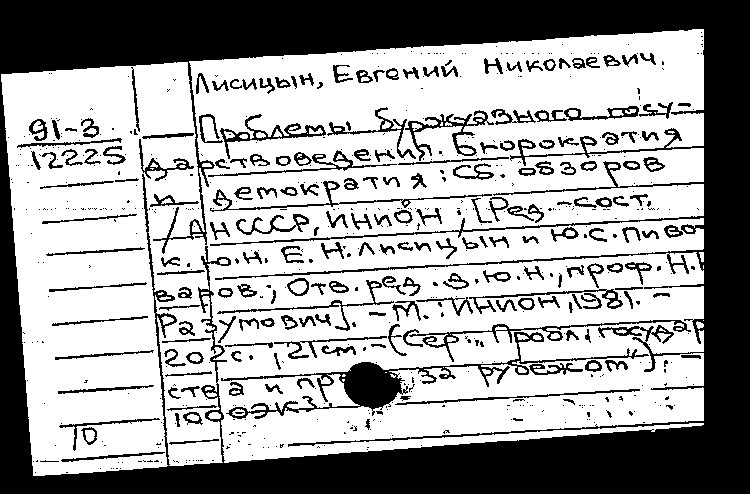 Лисицын, Евгений Николаевич.
91-3
12225
Проблемы буржуазного госу-
дарствоведения. Бюрократия
и демократия : Сб. обзоров
/ АН СССР, ИНИОН ; [Ред.-сост.
к.ю.н. Е.Н. Лисицын и Ю.С. Пиво-
варов.; Отв. ред. д.ю.н., проф. Н.Н.
Разумович]. - М. : ИНИОН, 1981. -
202с. ; 21см. - (Сер. „Пробл. государ
ства и пр за рубежом"). -
1000экз.
10